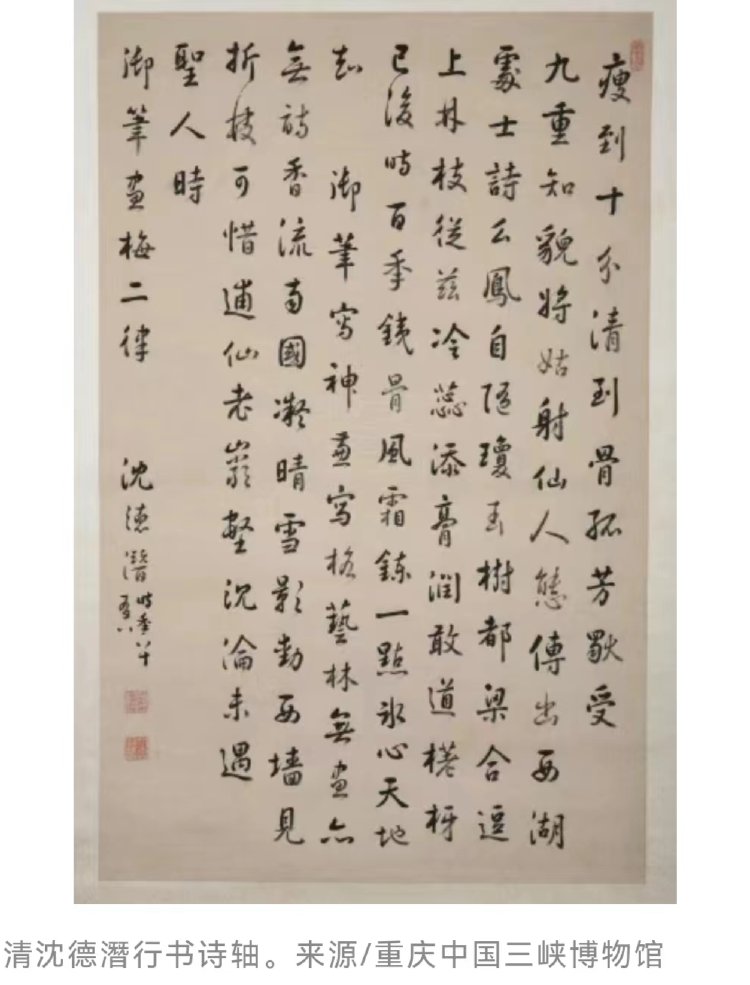 瘦到十分清到骨孤芳受
九重知貌將姑射仙人態傳出西湖
處士詩么鳳自隨瓊玉樹都梁合逗
上林枝從茲冷蕊添膏潤敢道槎枒
已後時百年鐵骨風霜鍊一點冰心天地
知 御筆寫神兼寫格藝林無畫亦
無詩香流南國凝晴雪影動西墻見
折枝可惜逋仙老巖壑沉淪未遇
聖人時
御筆畫梅二律 沈德潛 時年八十
清沈德潛行书诗轴。来源/重庆中国三峡博物馆